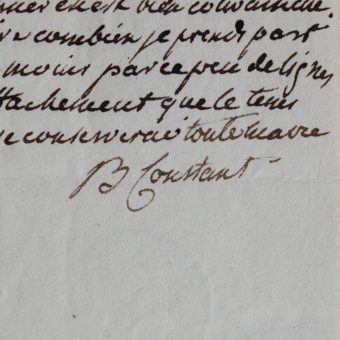 est bien convaincu.
combien je prends part
moins par ce peu de lignes
ttachement que le tems
conserverai toute ma vie
B Constant